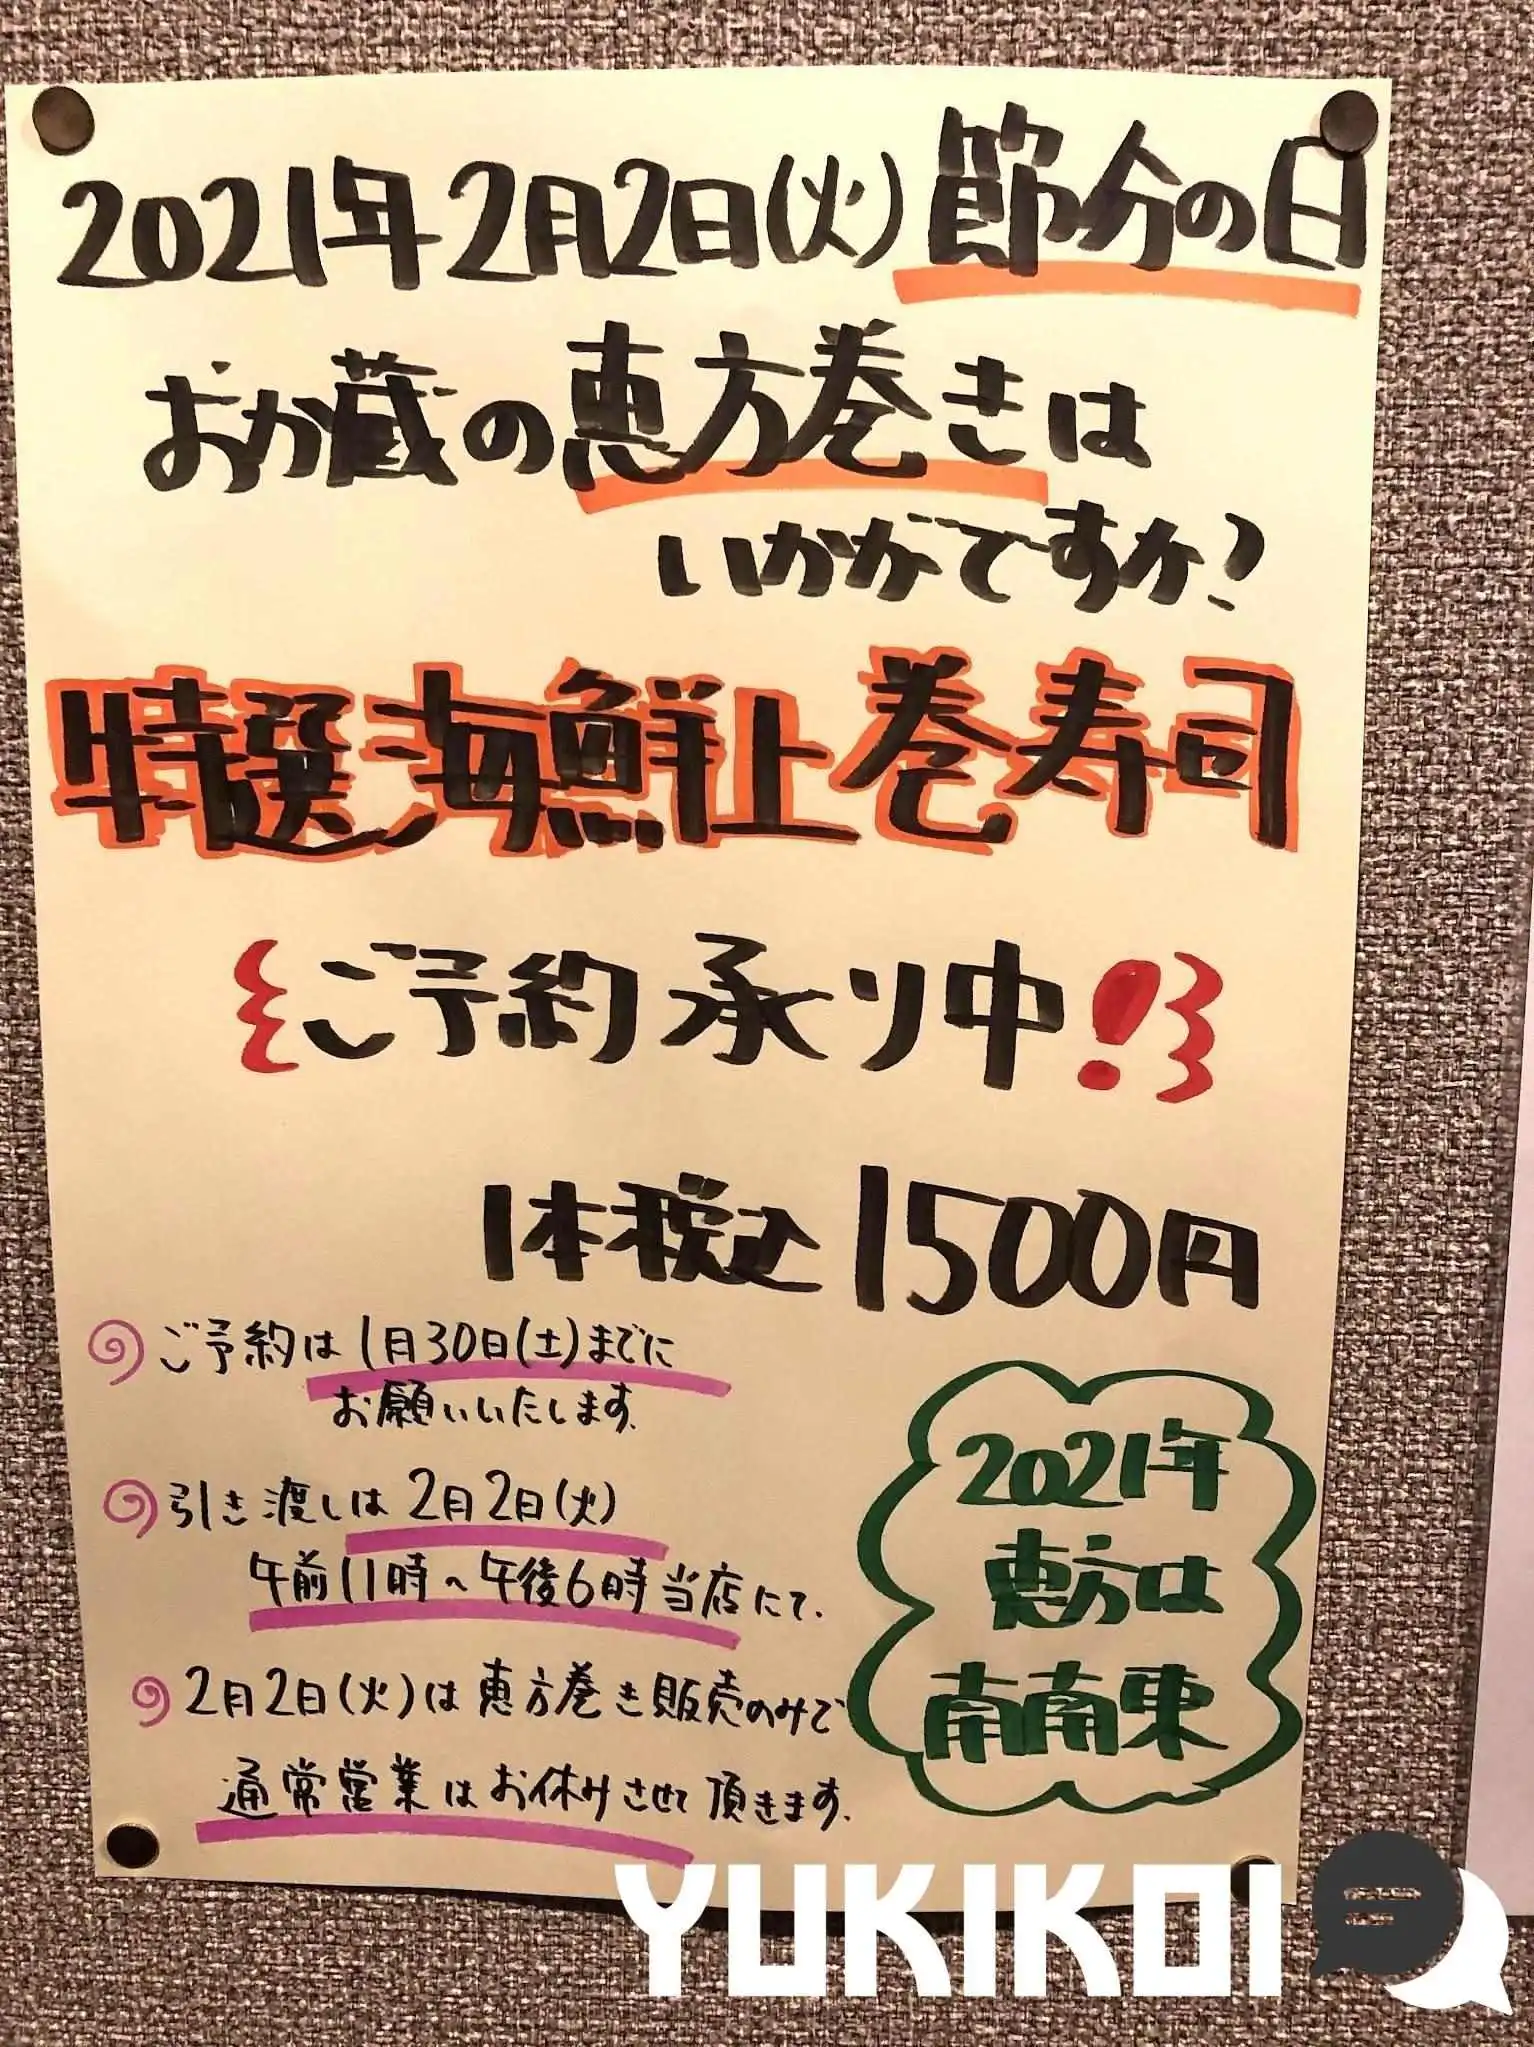 2021年2月2日(火)節分の日
おか蔵の恵方巻きは
いかがですか?
特選海鮮上巻寿司
ご予約承り中!
1本税込1500円
ご予約は1月30日(土)までに
お願いいたします。
引き渡しは2月2日(火)
午前11時~午後6時当店にて。
2月2日(火)は恵方巻き販売のみで
通常営業はお休みさせて頂きます。
2021年
恵方は
南南東
YUKIKOI